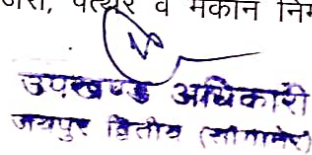 पत्थर व मकान
उपखण्ड अधिकारी
जयपुर द्वितीय (सांगानेर)